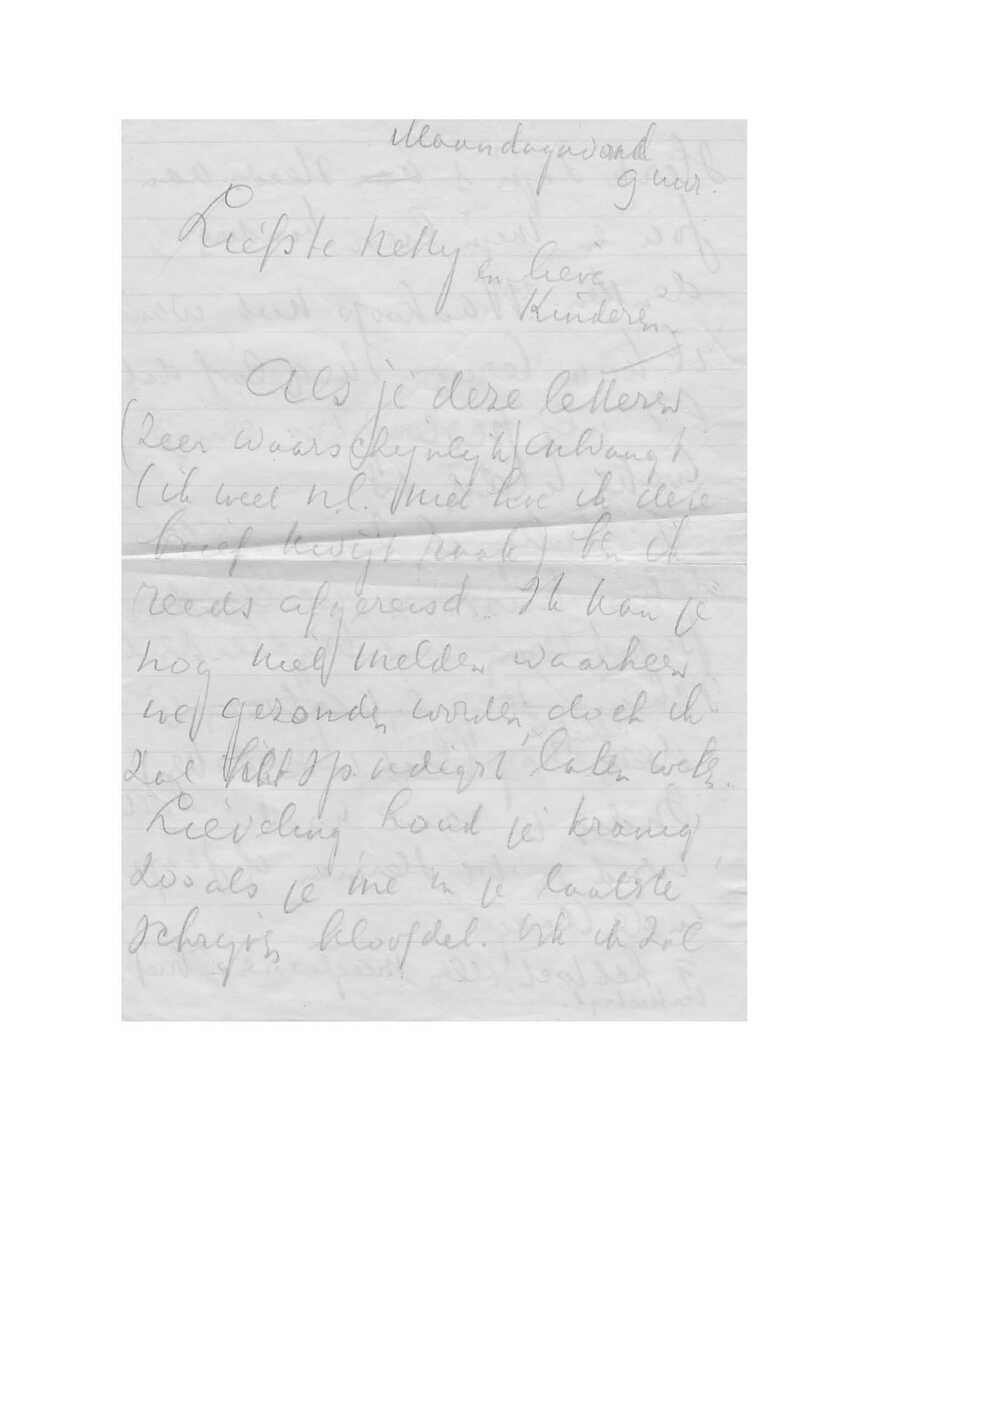 Maandagavond
9 uur.
Liefste Netty
en lieve
Kinderen
Als je deze letteren
(zeer waarschijnlijk) ontvangt
(ik weet n.l. niet hoe ik deze
brief kwijt raak) ben ik
reeds afgereisd. Ik kan je
nog niet melden waarheen
we gezonden worden, doch ik
zal het spoedigst laten weten.
Lieveling houd je kranig
zooals je me in je laatste
schrijven beloofdet. Ook ik zal